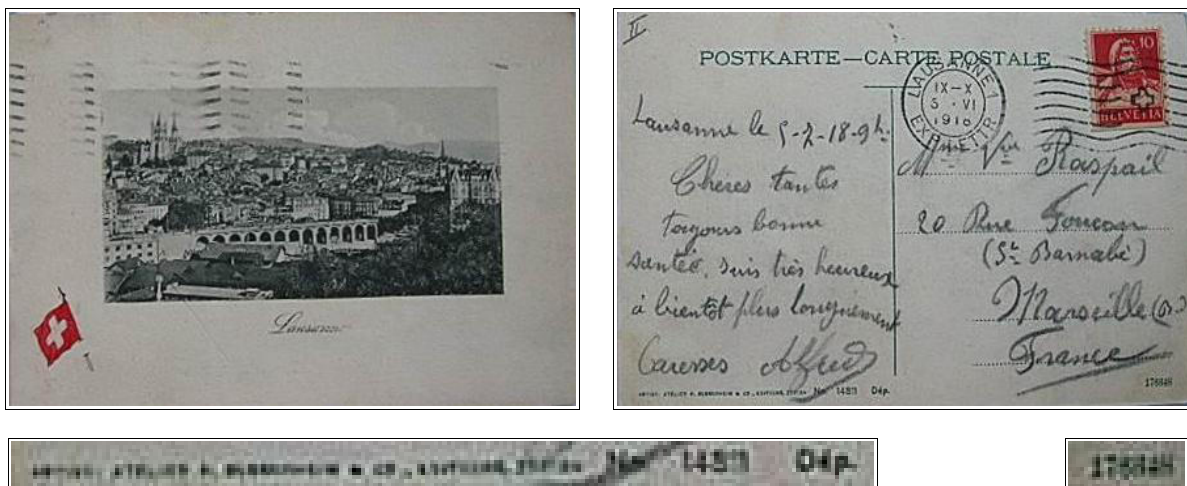 Lausanne
II
POSTKARTE—CARTE POSTALE
LAUSANNE 1
IX-X
5 · VI
1918
EXP. LETTR.
10
HELVETIA
Lausanne le 5-7-18-9h.
Cheres tantes
toujours bonne
santée, suis très heureux
à bientôt plus longuement
Caresses Alfred
Mme Vve Raspail
20 Rue
(St Barnabé)
Marseille
France
Dép.
176848
Dép.
176848